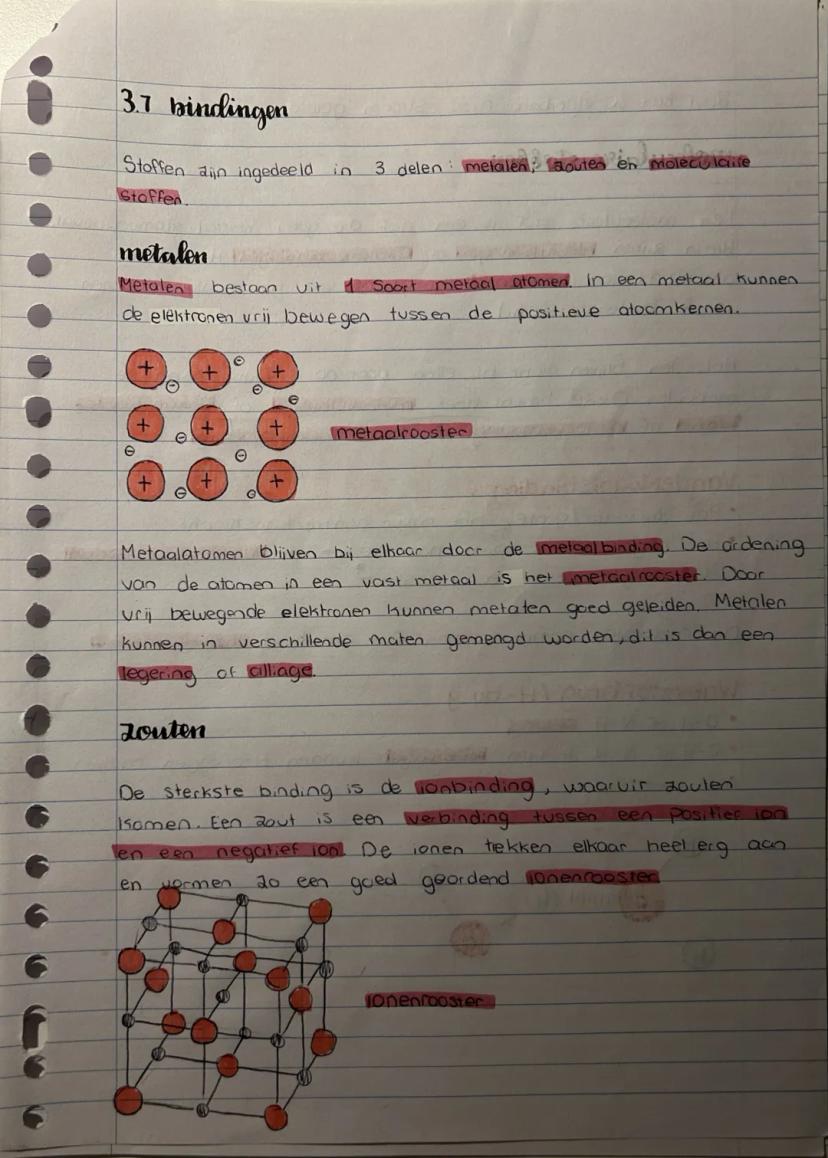 3.7 bindingen
Stoffen zijn ingedeeld in 3 delen: metalen; zouten en moleculaire
stoffen.
metalen
Metalen bestaan uit 1 soort metaal atomen. In een metaal kunnen
de elektronen vrij bewegen tussen de positieve atoomkernen.
+ + +
+ + + metaalrooster
+ + +
Metaalatomen blijven bij elkaar door de metaalbinding. De ordening
van de atomen in een vast metaal is het metaalrooster. Door
vrij bewegende elektronen kunnen metalen goed geleiden. Metalen
kunnen in verschillende maten gemengd worden, dit is dan een
legering of alliage.
zouten
De sterkste binding is de ionbinding, waaruit zouten
komen. Een zout is een verbinding tussen een positief ion
en een negatief ion. De ionen trekken elkaar heel erg aan
en vormen zo een goed geordend ionenrooster
ionenrooster